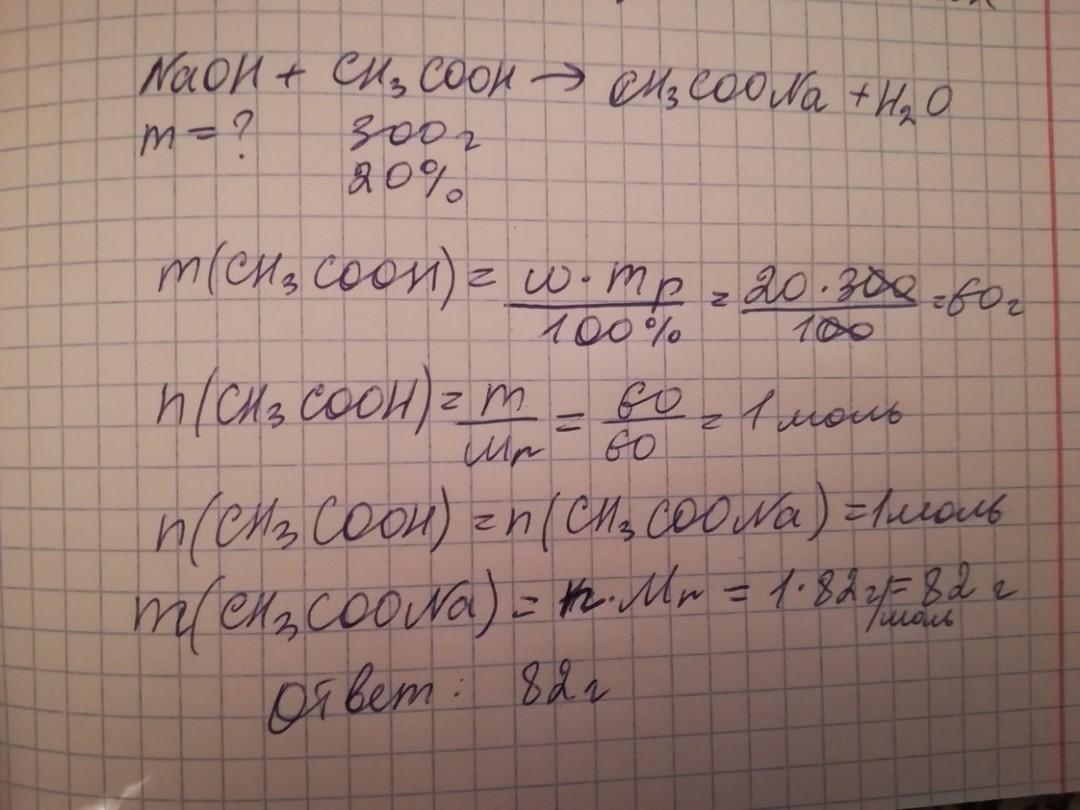 NaOH + CH₃COOH → CH₃COONa + H₂O
m = ? 300г
20%
m(CH₃COOH) = ω · mр / 100% = 20 · 300 / 100 = 60г
n(CH₃COOH) = m / Mr = 60 / 60 = 1 моль
n(CH₃COOH) = n(CH₃COONa) = 1 моль
m(CH₃COONa) = n · Mr = 1 · 82 г/моль = 82 г
Ответ: 82г